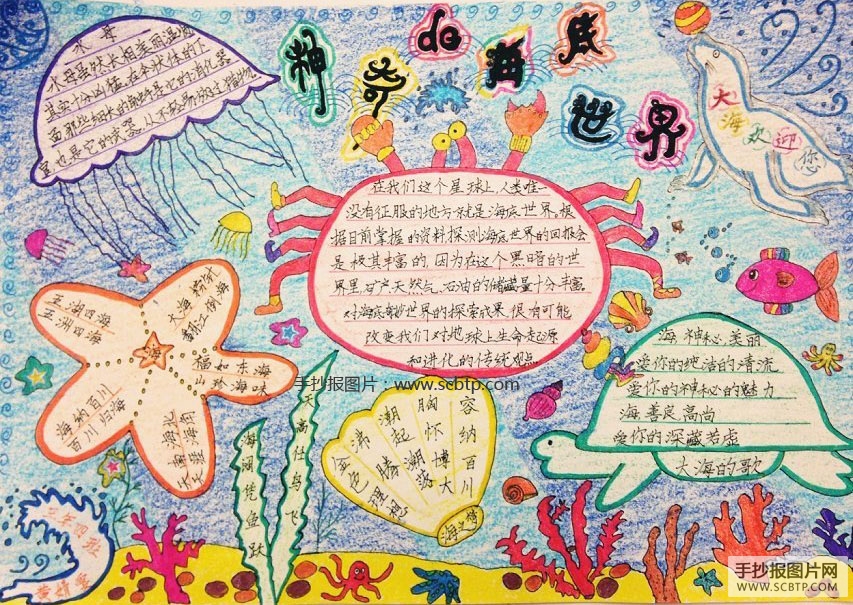 神奇的海底世界
水母
水母虽然长相美丽温顺
其实十分凶猛,在伞状体的下
面那些细长的触手是它的消化器
官也是它的武器,从不轻易放过猎物.
大海欢迎您
在我们这个星球上,人类唯一
没有征服的地方就是海底世界。根
据目前掌握的资料,探测海底世界的回报会
是极其丰富的,因为在这个黑暗的世
界里,矿产,天然气,石油的储藏量十分丰富
对海底奇妙世界的探索成果,很有可能
改变我们对地球上生命起源
和进化的传统观点
五湖四海
五洲四海
大海捞针
翻江倒海
海
福如东海
山珍海味
海纳百川
百川归海
天南海北
天涯海角
手抄报图片:www.scbtp.com
天高任鸟飞
海阔凭鱼跃
容纳百川
胸怀博大
潮起潮落
沸腾
金色理想
海之情
海,神秘,美丽
爱你的纯洁的清流
爱你的神秘的魅力
海善良高尚
爱你的深藏若虚
大海的歌
手抄报图片网
WWW.SCBTP.COM